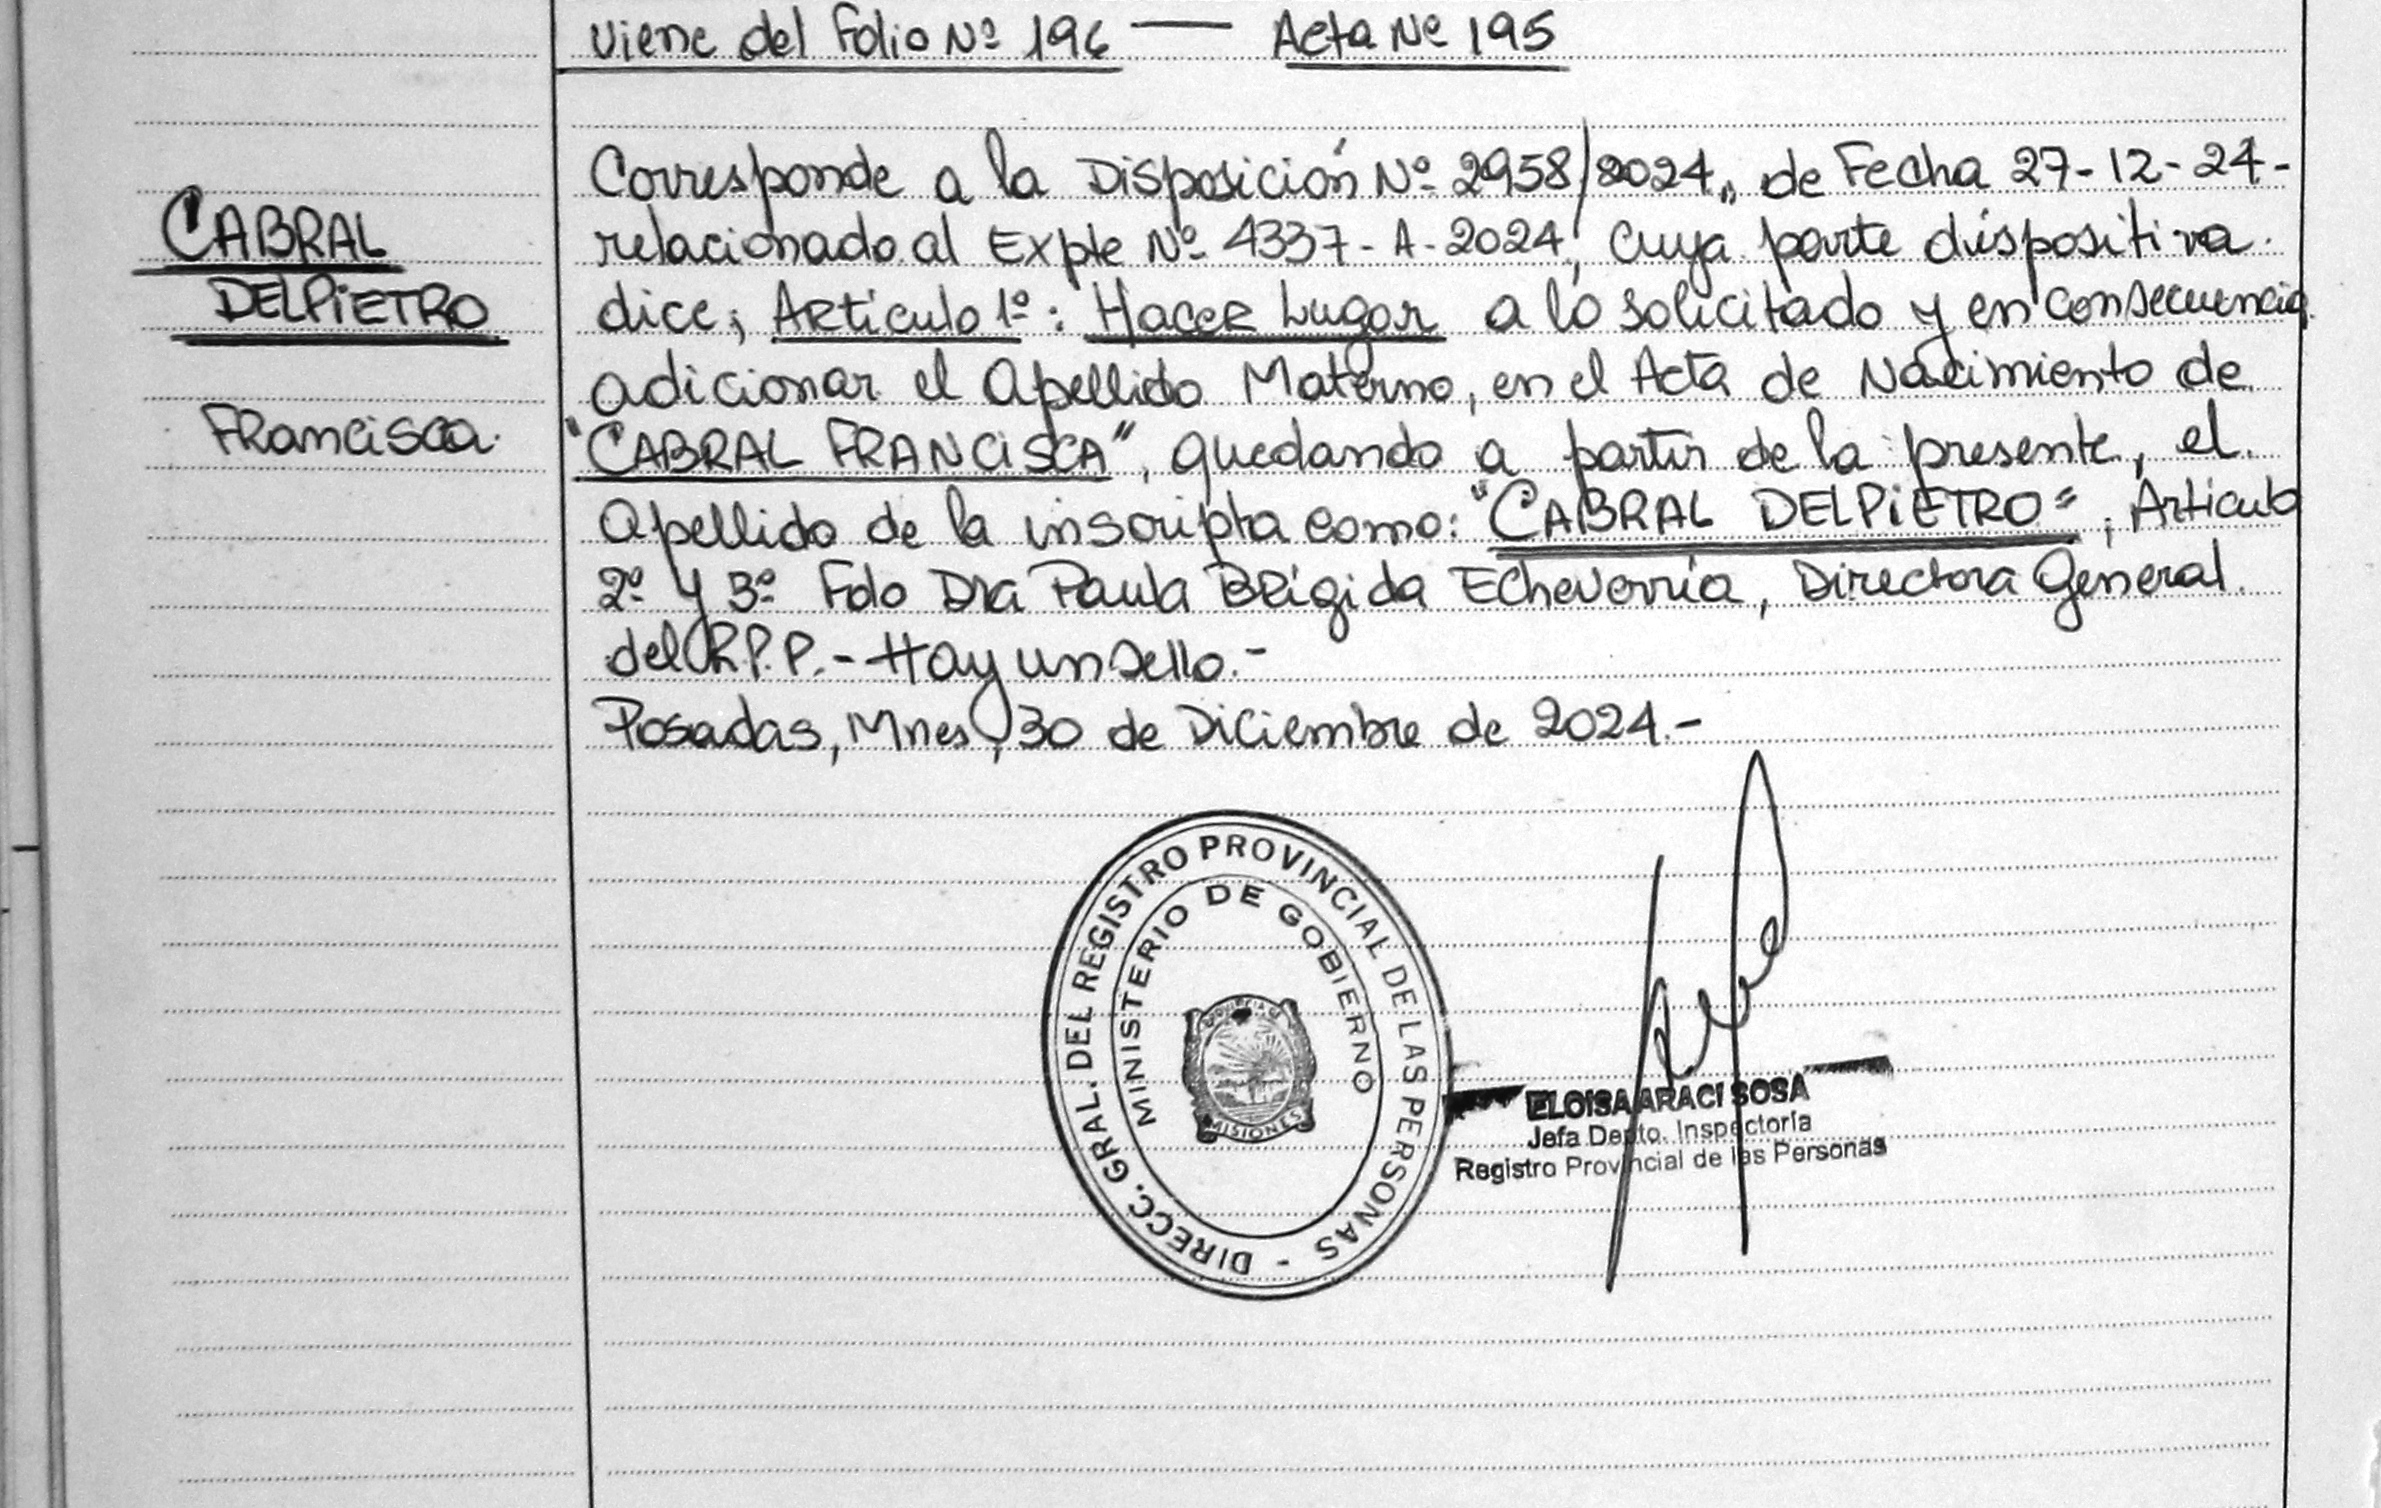 Viene del Folio Nº 196 — Acta Nº 195
CABRAL
DELPiETRO
FRancisca.
Corresponde a la Disposición Nº 2958/2024,, de Fecha 27-12-24-
relacionado al Expte Nº 4337-A-2024, cuya parte dispositiva.
dice; Artículo 1º: Hacer Lugar a lo solicitado y en consecuencia
adicionar el Apellido Materno, en el Acta de Nacimiento de
"CABRAL FRANCiSCA", quedando a partir de la presente, el.
Apellido de la inscripta como: "CABRAL DELPiETRO", Artículo
2º y 3º Fdo Dra Paula Brígida Echeverría, Directora General.
del R.P.P.- Hay un Sello.-
Posadas, Mnes, 30 de Diciembre de 2024.-
DIRECC. GRAL. DEL REGISTRO PROVINCIAL DE LAS PERSONAS -
MINISTERIO DE GOBIERNO
MISIONES
ELOISA ARACI SOSA
Jefa Depto. Inspectoría
Registro Provincial de las Personas